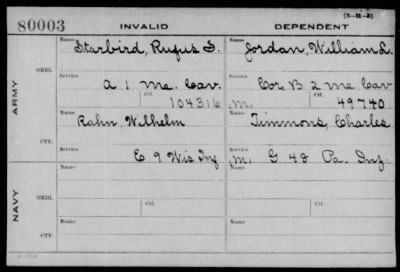 (3-21-5)
80003 INVALID DEPENDENT
ARMY
ORIG.
Name Starbird, Rufus S. Name Jordan, William L.
Service A 1 Me. Cav. Service Cor. B 2 Me Cav
Ctf. 104316 M. Ctf. 49740
CTF.
Name Rahn, Wilhelm Name Timmons, Charles
Service E 9 Wis Inf Service M. G 48 Pa. Inf.
NAVY
ORIG.
Name Name
Ctf. Ctf.
CTF.
Name Name